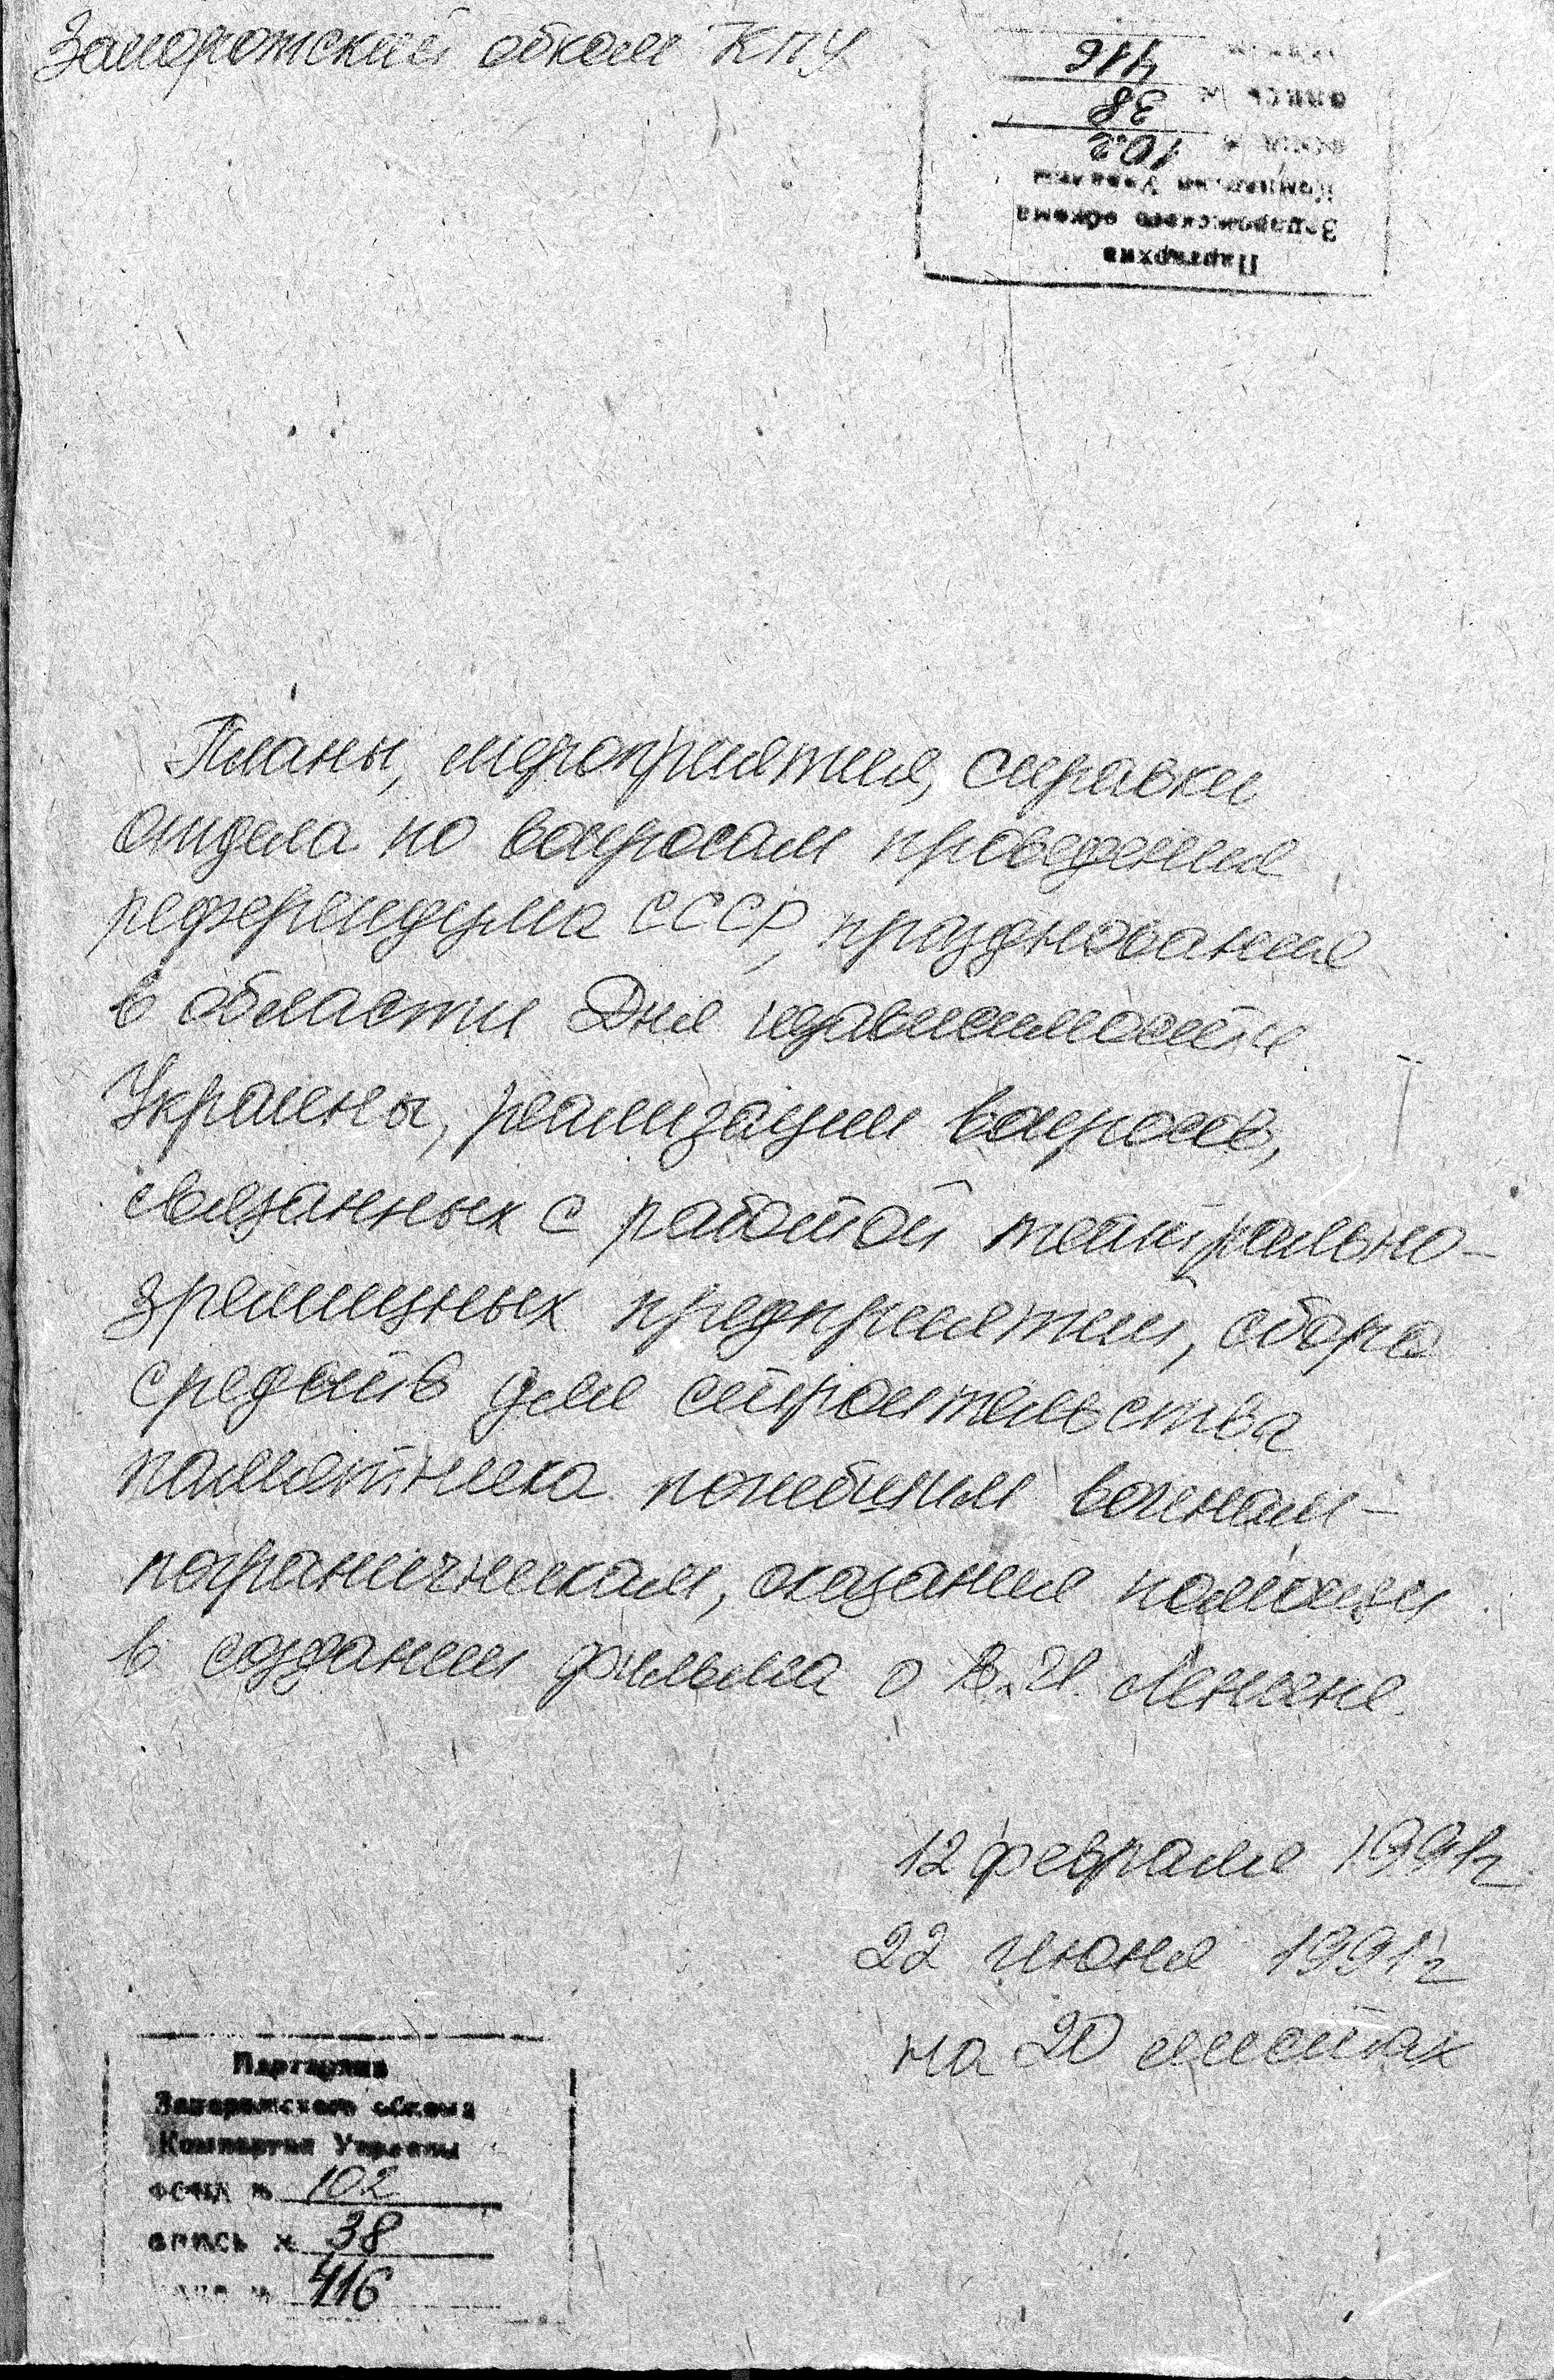 Запорожский обком КПУ
416
опись № 38
фонд № 102
Компартии Украины
Запорожского обкома
Партархив
Планы, мероприятия, справки
отдела по вопросам проведения
референдума СССР, празднования
в области Дня независимости
Украины, реализации вопросов,
связанных с работой театрально-
зрелищных предприятий, сбора
средств для строительства
памятника погибшим воинам-
пограничникам, оказания помощи
в создании фильма о В.И. Ленине.
12 февраля 1991г.
22 июня 1991г
на 20 листах
Партархив
Запорожского обкома
Компартии Украины
фонд № 102
опись № 38
416